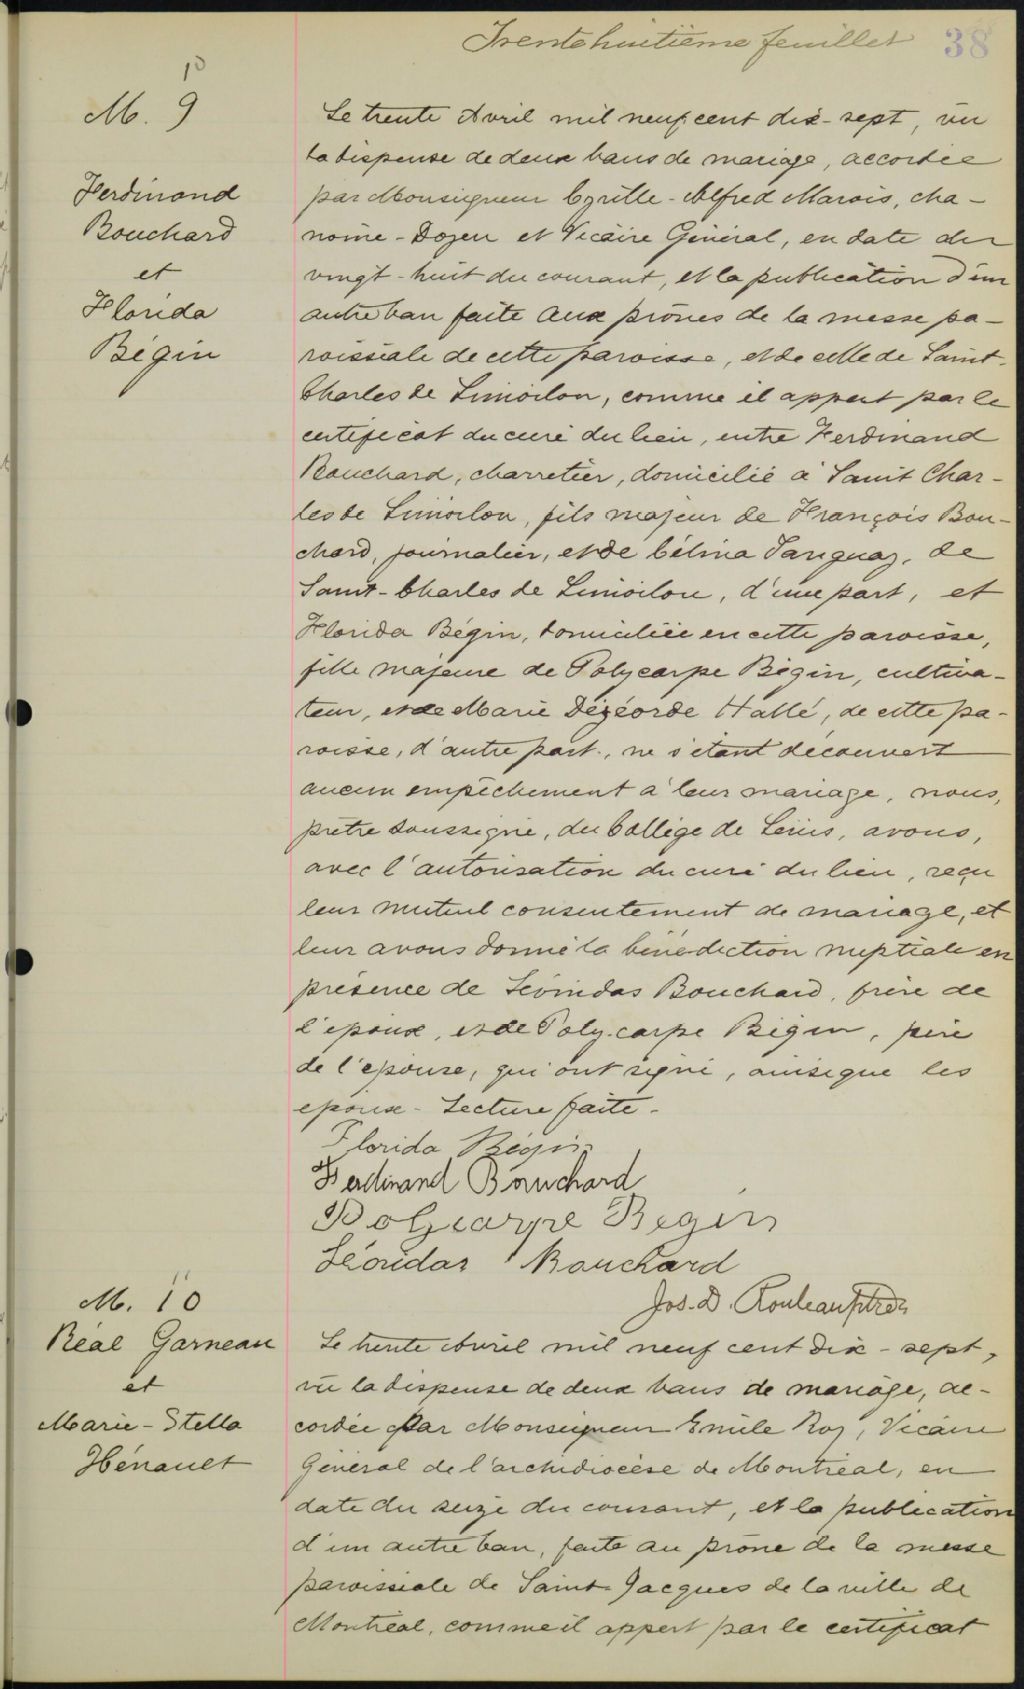 Trente huitième feuillet 38
10
M. 9
Ferdinand
Bouchard
et
Florida
Bégin
Le trente Avril mil neuf cent dix-sept, vu
la dispense de deux bans de mariage, accordée
par Monseigneur Cyrille-Alfred Marois, cha-
noine-Doyen et Vicaire Général, en date du
vingt-huit du courant, et la publication d'un
autre ban faite aux prônes de la messe pa-
roissiale de cette paroisse, et de celle de Saint-
Charles de Limoilou, comme il appert par le
certificat du curé du lieu, entre Ferdinand
Bouchard, charretier, domicilié à Saint Char-
les de Limoilou, fils majeur de François Bou-
chard, journalier, et de Célina Tanguay, de
Saint-Charles de Limoilou, d'une part, et
Florida Bégin, domiciliée en cette paroisse,
fille majeure de Polycarpe Bégin, cultiva-
teur, et de Marie Dézéorde Hallé, de cette pa-
roisse, d'autre part, ne s'étant découvert
aucun empêchement à leur mariage, nous,
prêtre soussigné, du Collège de Lévis, avons,
avec l'autorisation du curé du lieu, reçu
leur mutuel consentement de mariage, et
leur avons donné la bénédiction nuptiale en
présence de Léonidas Bouchard, frère de
l'époux, et de Polycarpe Bégin, père
de l'épouse, qui ont signé, ainsi que les
époux - Lecture faite -
Florida Bégin
Ferdinand Bouchard
Polycarpe Begin
Léonidas Bouchard
Jos. D. Rouleau ptre
M. 10
Réal Garneau
et
Marie-Stella
Hénault
Le trente Avril mil neuf cent dix-sept,
vu la dispense de deux bans de mariage, ac-
cordée par Monseigneur Emile Roy, Vicaire
Général de l'archidiocèse de Montréal, en
date du seize du courant, et la publication
d'un autre ban, faite au prône de la messe
paroissiale de Saint-Jacques de la ville de
Montréal, comme il appert par le certificat